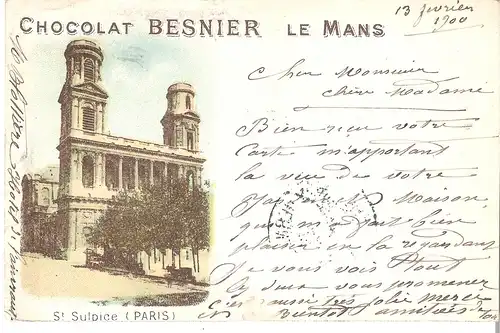 CHOCOLAT BESNIER LE MANS
13 février
1900
Cher Monsieur
chère Madame
Bien reçu votre
Carte m'apportant
la vue de votre
Maison
qui m'a fait bien
plaisir en la regardant
Je vous vois tout
deux vous promener
C'est aussi très joli merci
bientôt amitiés
St Sulpice (PARIS)